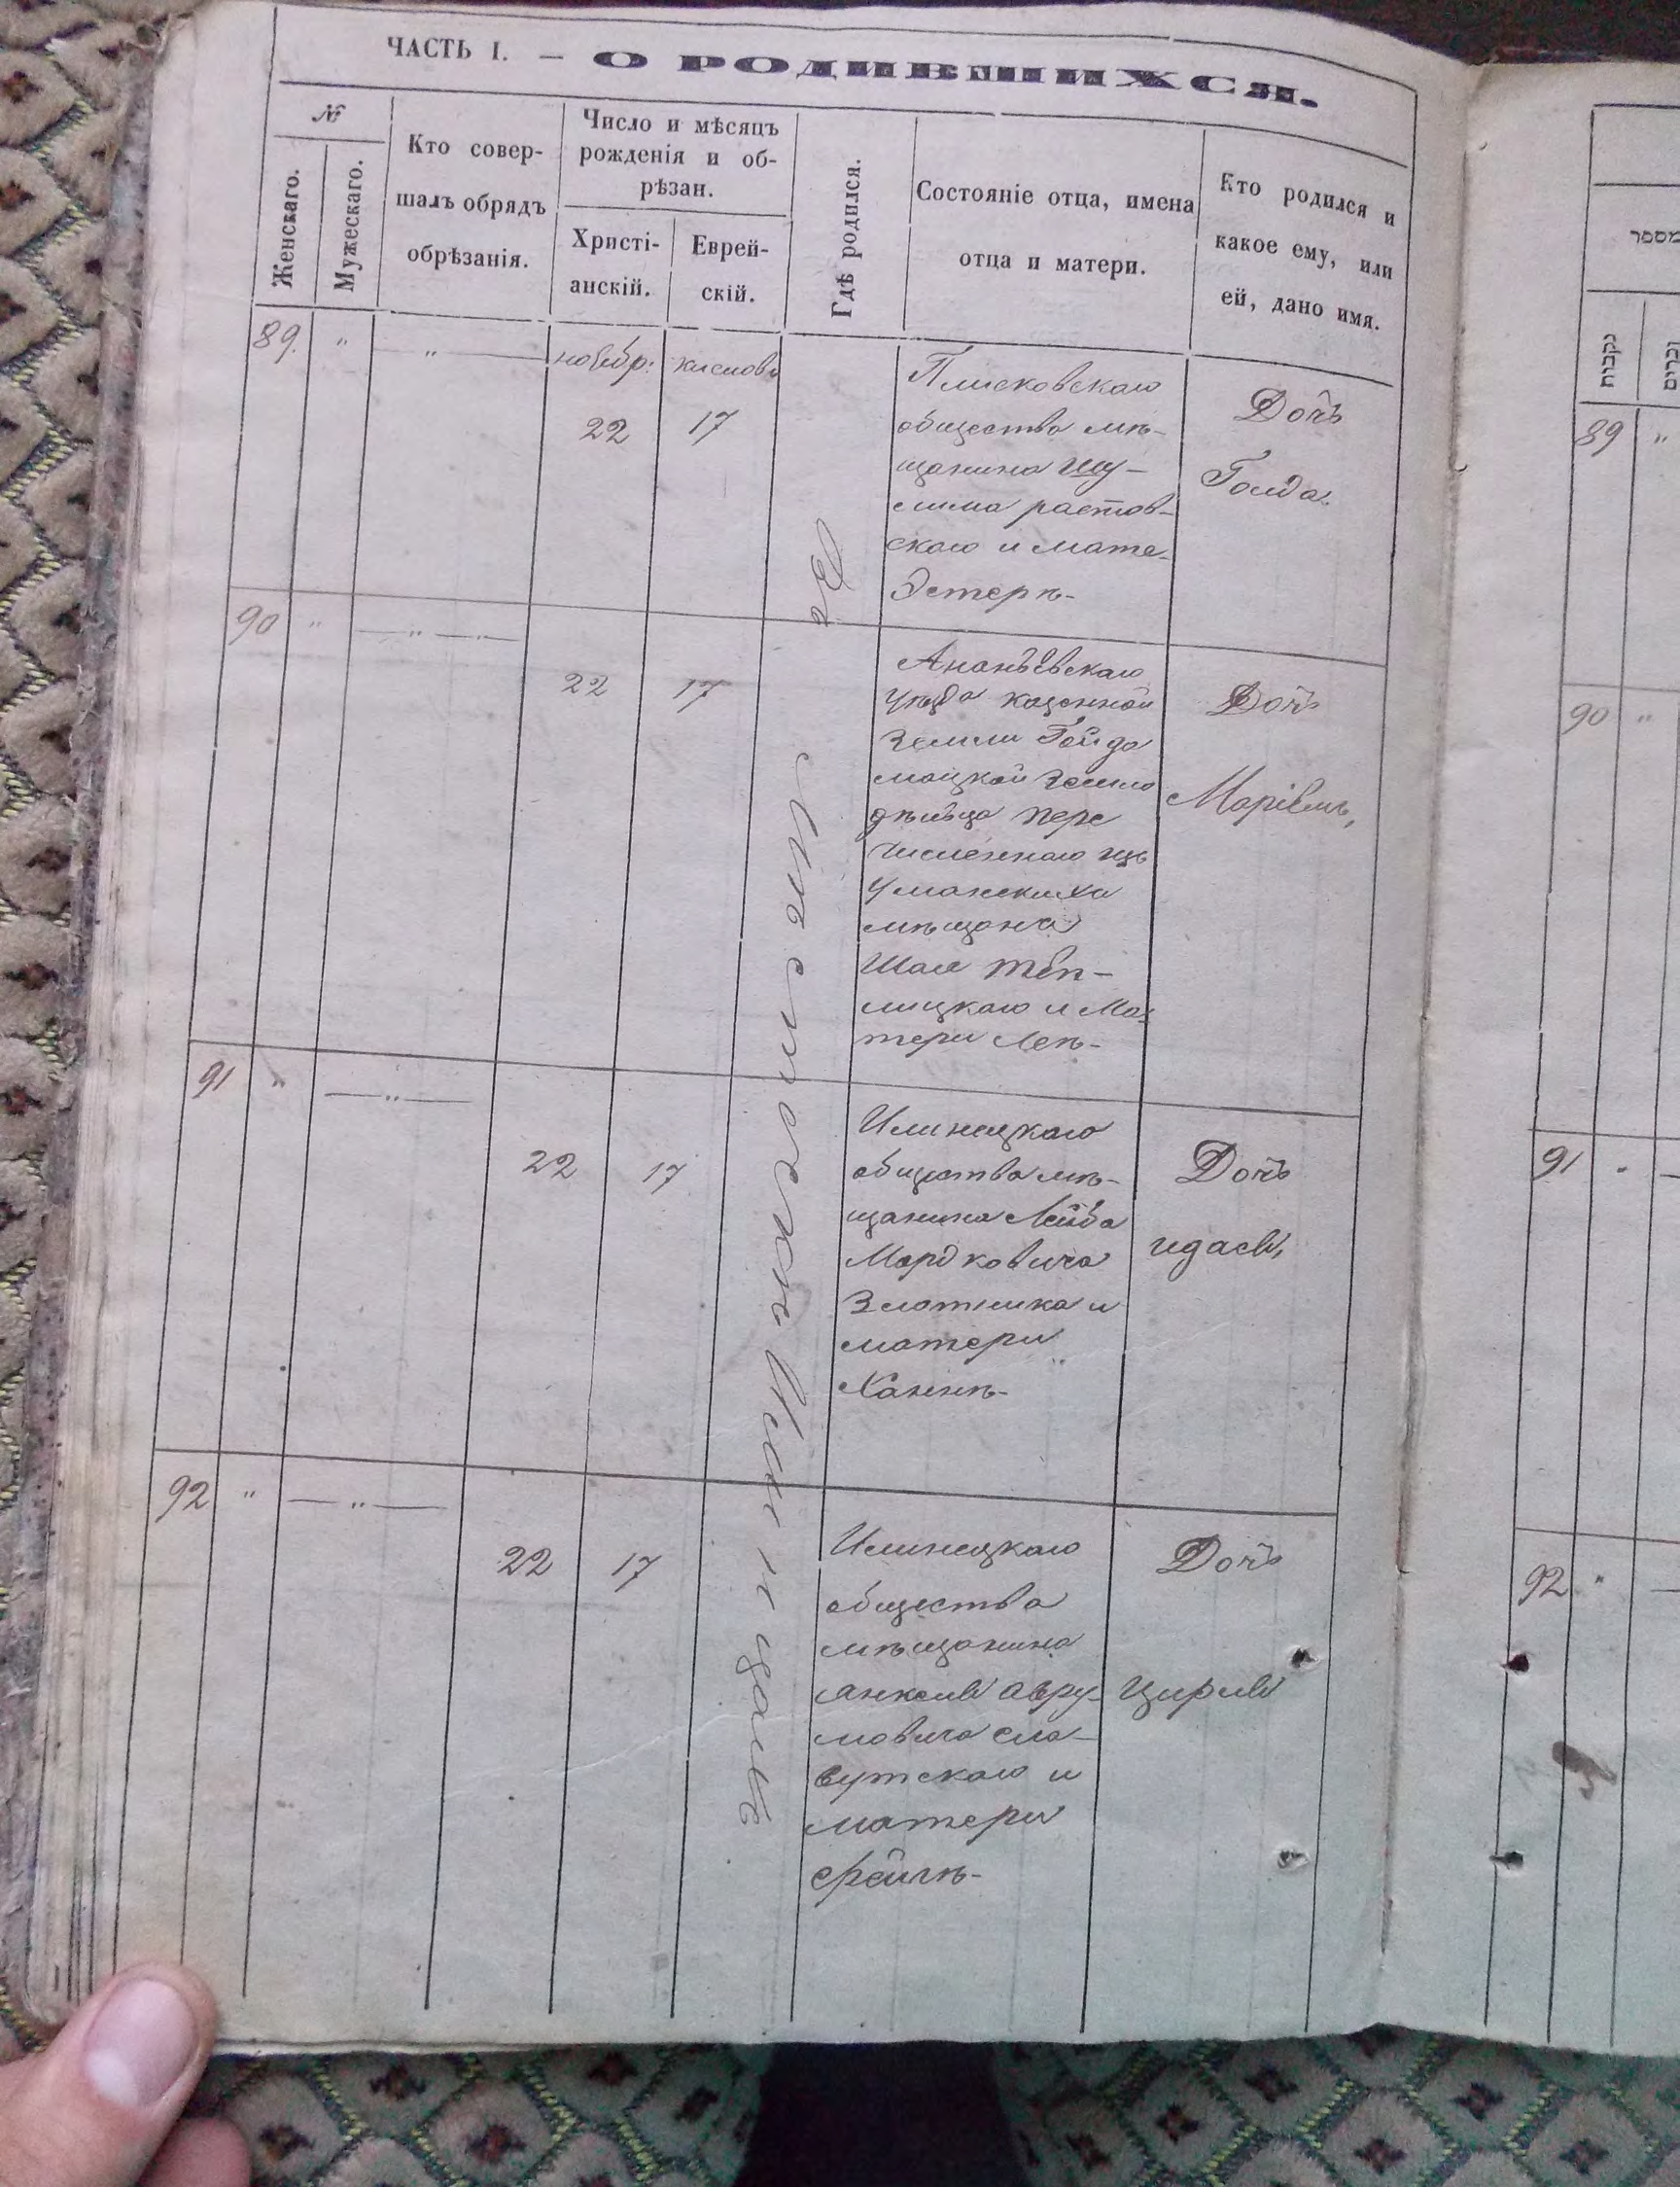 ЧАСТЬ I. — О РОДИВШИХСЯ.
№
Женскаго.
Мужескаго.
Кто совер-
шалъ обрядъ
обрѣзанія.
Число и мѣсяцъ
рожденія и об-
рѣзан.
Христі-
анскій.
Еврей-
скій.
Гдѣ родился.
Состояніе отца, имена
отца и матери.
Кто родился и
какое ему, или
ей, дано имя.
89. " — " —
22 17
Плисковскаго
общества мѣ-
щанина Шу-
лима растов-
скаго и мате-
Эстеръ-
Дочь
Голда.
90 " — " —
22 17
Ананьевскаго
уѣзда казенной
Земли Гайда
мацкой земле
дѣльца пере
численнаго изъ
Уманскихъ
мѣщанъ
Шая Теп-
лицкаго и Ма-
тери Леѣ-
Дочь
Марьемъ,
91 " — " —
22 17
Илинецкаго
общества мѣ-
щанина Лейба
Мордковича
Златника и
матери
Ханнѣ-
Дочь
92 " — " —
22 17
Илинецкаго
общества
мѣщанина
Янкеля Авру-
мовича Сла-
вутскаго и
матери
Фейгѣ-
Дочь
Цирля
מספר
נקבות
זכרים
89 "
90 "
91 "
92 "